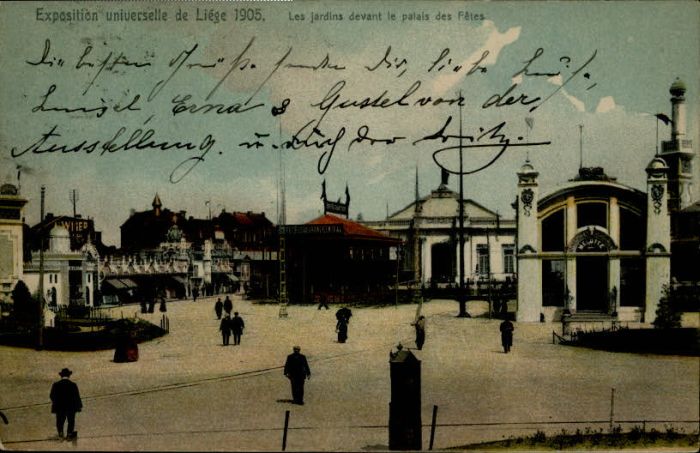 Exposition universelle de Liége 1905. Les jardins devant le palais des Fêtes
Die besten Grüße senden Dir, liebe
Luisel, Erna & Gustel von der
Ausstellung. u. auch der Fritz.